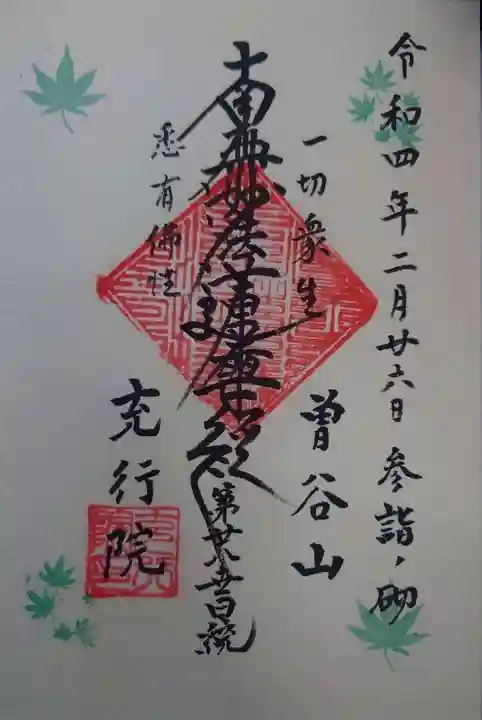 令和四年二月廿六日 参詣ノ砌
一切衆生
曽谷山
南無妙法蓮華経
悉有佛性
充行院